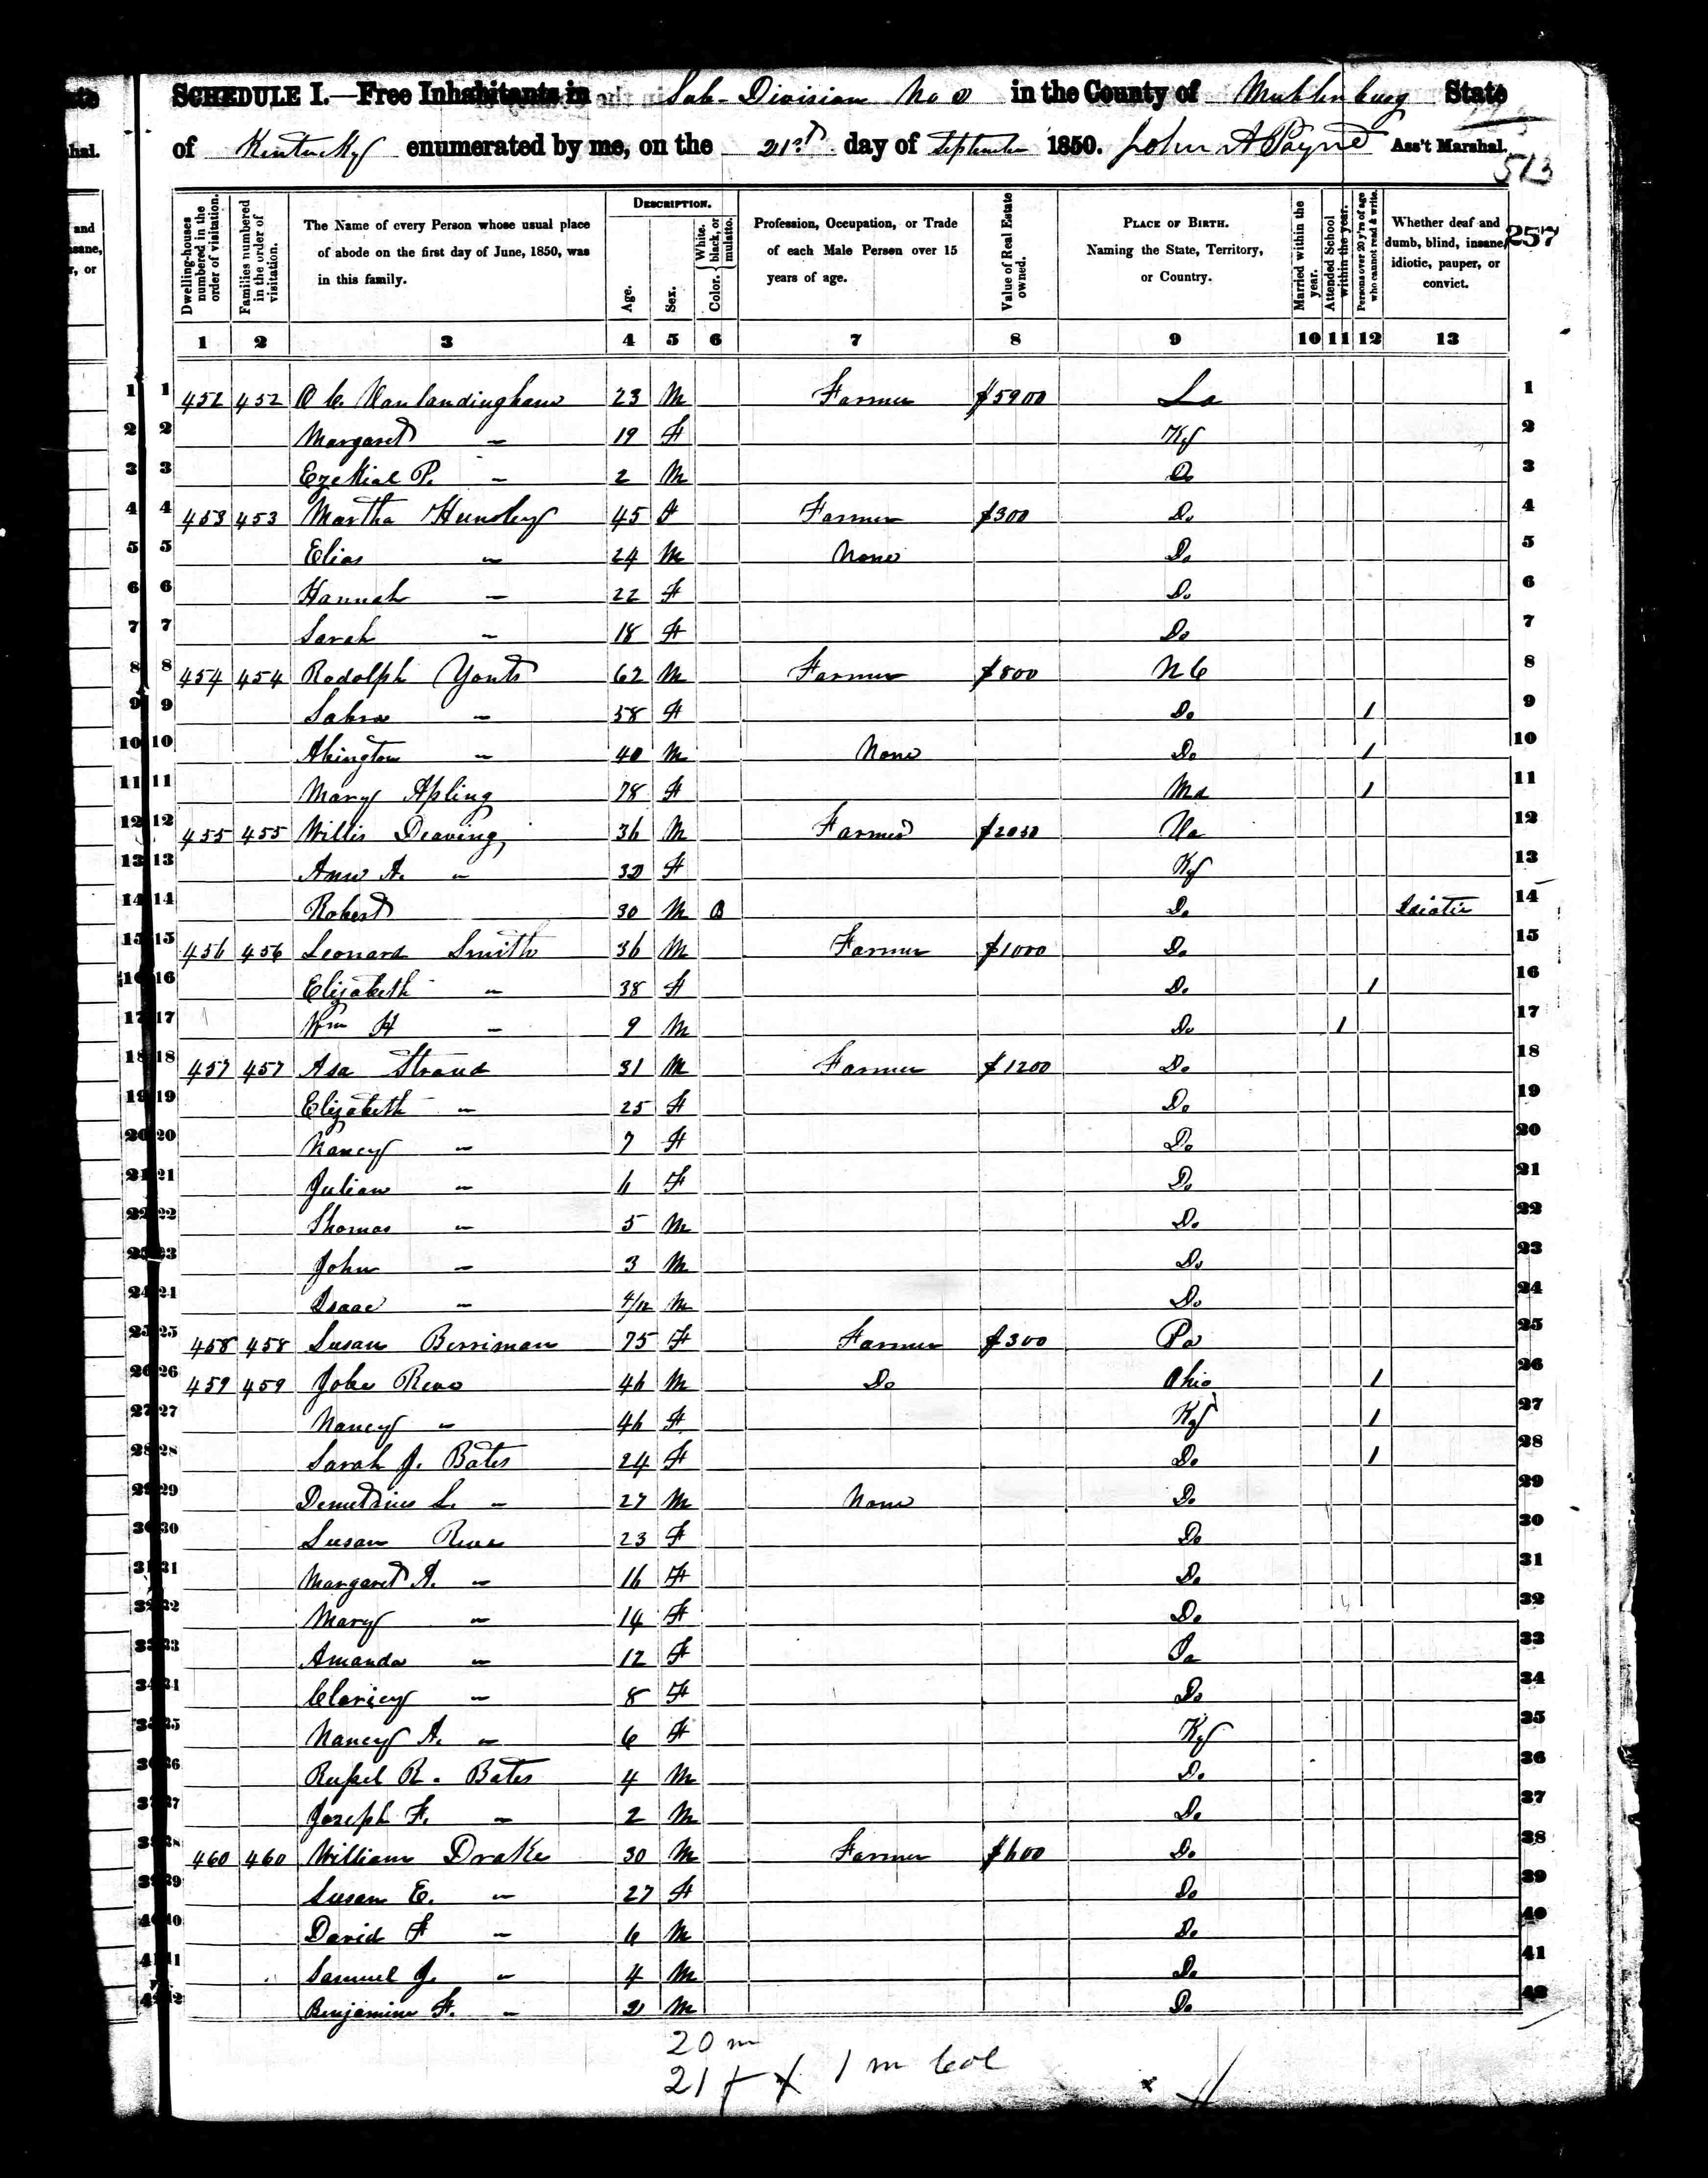 SCHEDULE I.—Free Inhabitants in Sub-Division No in the County of Muhlenburg State
of Kentucky enumerated by me, on the 21st day of September 1850. John A Payne Ass't Marshal.
513
257
Dwelling-houses numbered in the order of visitation.
Families numbered in the order of visitation.
The Name of every Person whose usual place of abode on the first day of June, 1850, was in this family.
DESCRIPTION.
Age.
Sex.
Color. White, black, or mulatto.
Profession, Occupation, or Trade of each Male Person over 15 years of age.
Value of Real Estate owned.
PLACE OF BIRTH. Naming the State, Territory, or Country.
Married within the year.
Attended School within the year.
Persons over 20 y'rs of age who cannot read & write.
Whether deaf and dumb, blind, insane, idiotic, pauper, or convict.
1 2 3 4 5 6 7 8 9 10 11 12 13
1 452 452 O C. Vanlandingham 23 M Farmer $5900 La 1
2 Margaret " 19 F Ky 2
3 Ezekial P. " 2 M Do 3
4 453 453 Martha Hunsley 45 F Farmer $300 Do 4
5 Elias " 24 M None Do 5
6 Hannah " 22 F Do 6
7 Sarah " 18 F Do 7
8 454 454 Rodolph Yonts 62 M Farmer $800 N C 8
9 " 58 F Do 1 9
10 Abington " 40 M None Do 1 10
11 Mary Apling 78 F Md 1 11
12 455 455 Willis Deaving 36 M Farmer $2050 Va 12
13 Ann A. " 32 F Ky 13
14 Robert 30 M B Do Idiotic 14
15 456 456 Leonard Smith 36 M Farmer $1000 Do 15
16 Elizabeth " 38 F Do 1 16
17 Wm H " 9 M Do 1 17
18 457 457 Asa Stroud 31 M Farmer $1200 Do 18
19 Elizabeth " 25 F Do 19
20 Nancy " 7 F Do 20
21 Julian " 6 F Do 21
22 Thomas " 5 M Do 22
23 John " 3 M Do 23
24 Isaac " 4/12 M Do 24
25 458 458 Susan Berriman 75 F Farmer $300 Pa 25
26 459 459 Jobe Reno 46 M Do Ohio 1 26
27 Nancy " 46 F Ky 1 27
28 Sarah J. Bates 24 F Do 1 28
29 Demetrius L. " 27 M None Do 29
30 Susan Reno 23 F Do 30
31 Margaret A. " 16 F Do 31
32 Mary " 14 F Do 32
33 Amanda " 12 F Ia 33
34 Claricy " 8 F Do 34
35 Nancy A. " 6 F Ky 35
36 Russel R. Bates 4 M Do 36
37 Joseph F. " 2 M Do 37
38 460 460 William Drake 30 M Farmer $600 Do 38
39 Susan E. " 27 F Do 39
40 David F " 6 M Do 40
41 Samuel J. " 4 M Do 41
42 Benjamin F. " 2 M Do 42
20 m
21 f 1 m Col